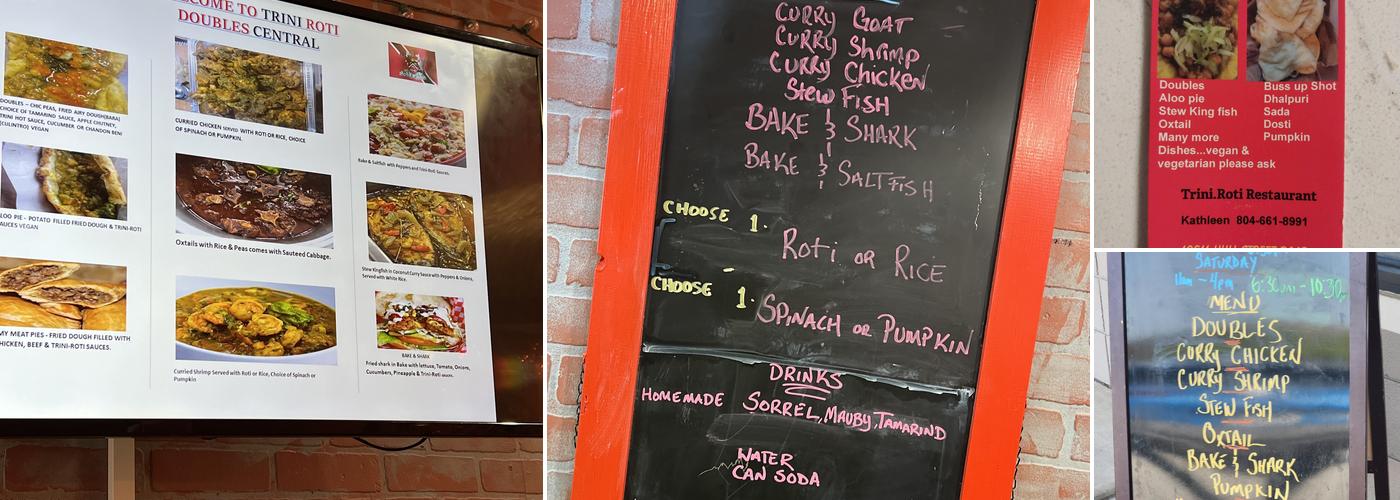 COME TO TRINI ROTI
DOUBLES CENTRAL
DOUBLES – CHIC PEAS, FRIED AIRY DOUGH(BARA)
CHOICE OF TAMARIND SAUCE, APPLE CHUTNEY,
TRINI HOT SAUCE, CUCUMBER OR CHANDON BENI
(CULINTRO) VEGAN
LOO PIE - POTATO FILLED FRIED DOUGH & TRINI-ROTI
AUCES VEGAN
MY MEAT PIES - FRIED DOUGH FILLED WITH
HICKEN, BEEF & TRINI-ROTI SAUCES.
CURRIED CHICKEN SERVED WITH ROTI OR RICE, CHOICE
OF SPINASH OR PUMPKIN.
Oxtails with Rice & Peas comes with Sauteed Cabbage.
Curried Shrimp Served with Roti or Rice, Choice of Spinash or
Pumpkin
Bake & Saltfish with Peppers and Trini-Roti Sauces.
Stew Kingfish in Coconut Curry Sauce with Peppers & Onions,
Served with White Rice.
BAKE & SHARK
Fried shark in Bake with lettuce, Tomato, Onions,
Cucumbers, Pineapple & Trini-Roti sauces.
CURRY GOAT
CURRY Shrimp
CURRY CHICKEN
Stew FISH
BAKE & SHARK
BAKE & SALTFISH
CHOOSE 1.
Roti OR RICE
CHOOSE 1.
SPINACH OR PUMPKIN
DRINKS
HOMEMADE SORREL, MAUBY, TAMARIND
WATER
CAN SODA
Doubles
Aloo pie
Stew King fish
Oxtail
Many more
Dishes...vegan &
vegetarian please ask
Buss up Shot
Dhalpuri
Sada
Dosti
Pumpkin
Trini.Roti Restaurant
Kathleen 804-661-8991
SATURDAY
11am - 4pm 6:30pm - 10:30
MENU
DOUBLES
CURRY CHICKEN
CURRY SHRIMP
STEW FISH
OXTAIL
BAKE & SHARK
PUMPKIN